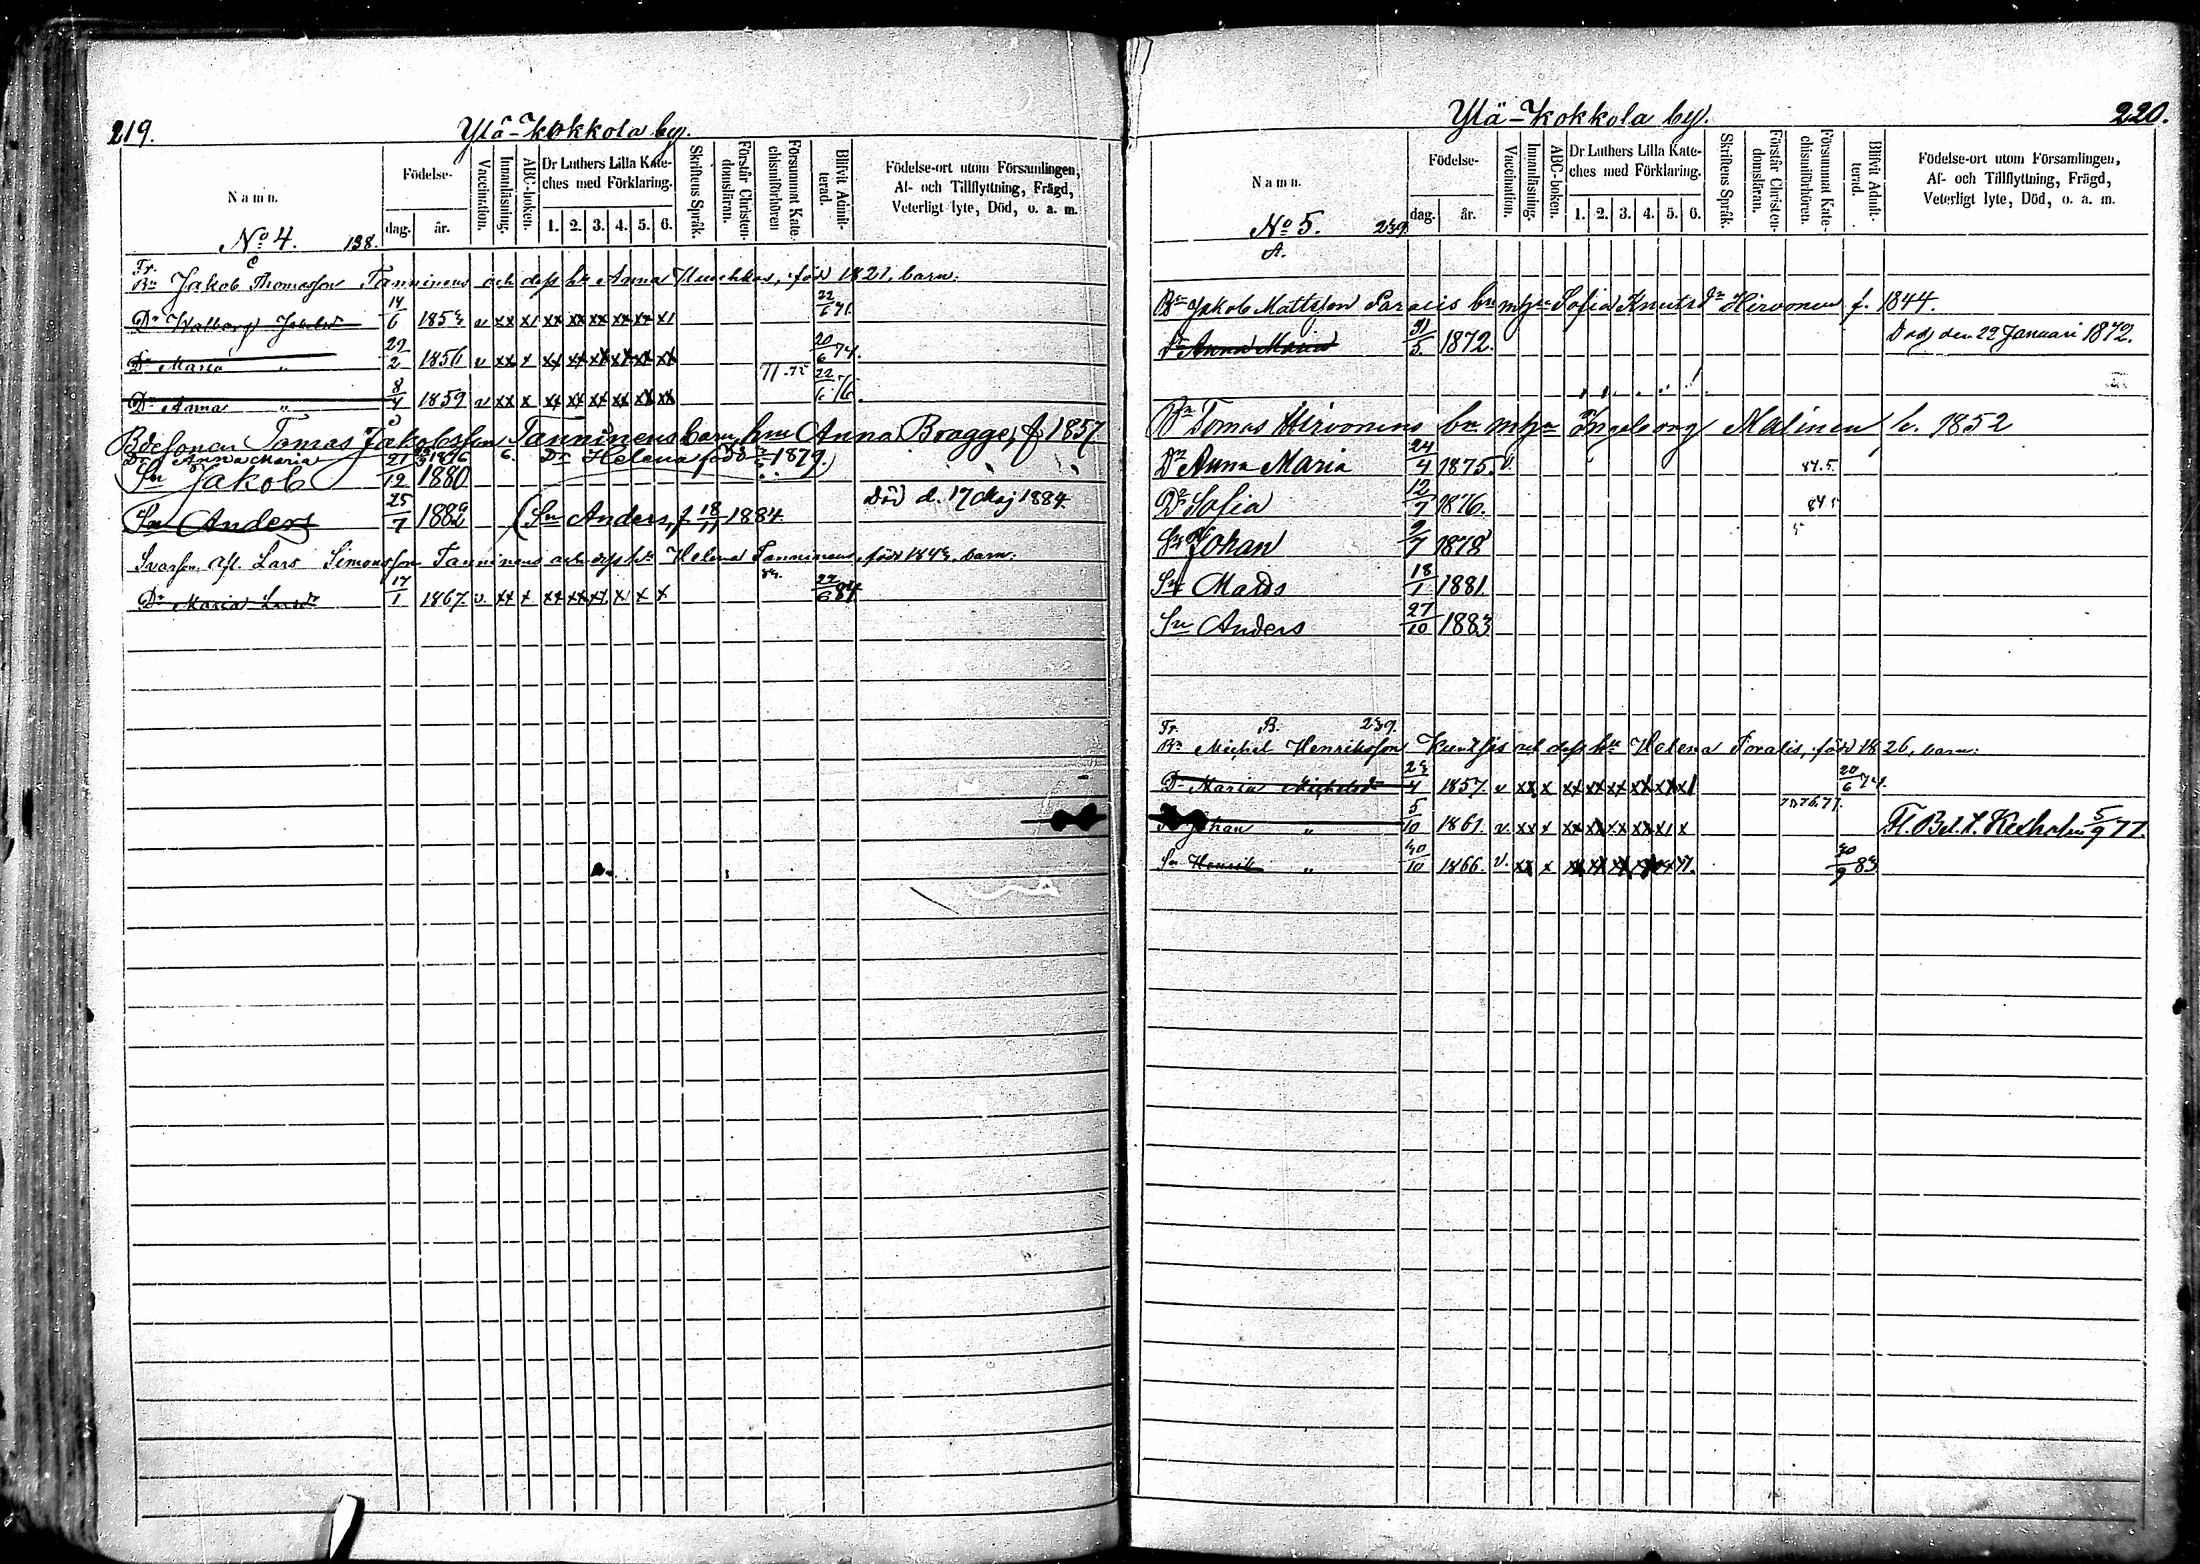 219.
Ylä-Kokkola by.
Namn.
Födelse-
dag.
år.
Vaccination.
Innanläsning.
ABC-boken.
Dr Luthers Lilla Kate-
ches med Förklaring.
1. 2. 3. 4. 5. 6.
Skriftens Språk.
Förstår Christen-
domsläran.
Försummat Kate-
chismiförhören
Blifvit Admit-
terad.
Födelse-ort utom Församlingen,
Af- och Tillflyttning, Frägd,
Veterligt lyte, Död, o. a. m.
No 4. 138.
Fr.
Bn Jakob Thomasson Tanninens och dess h. Anna född 1821, barn:
Dr Walborg Jakobsdr 14/6 1853 v xx x1 xx xx xx xx xx x1 22/6 71.
Dr Maria " 29/2 1856 v xx x xx xx xx xx xx xx 20/6 74.
Dr Anna " 8/4 1859 v xx x xx xx xx xx xx xx 77.75 22/6 76.
Bdesonen Tomas Jakobsson Tanninens barn, hru Anna Bragge, f. 1857
Dr Anna Maria 1876 Dr Helena född 1879.
Sn Jakob 21/12 1880
Sn Anders 25/7 1882 (Sn Anders, f. 18/11 1884. Död d. 17 Maj 1884.
Lars Simonsson Tanninens och dess h. Helena Tanninens, född 1843, barn:
Dr Maria Larsdr 17/1 1867. v. xx x xx xx x1 x x x 84. 22/6 84.
220.
Ylä-Kokkola by.
Namn.
Födelse-
dag.
år.
Vaccination.
Innanläsning.
ABC-boken.
Dr Luthers Lilla Kate-
ches med Förklaring.
1. 2. 3. 4. 5. 6.
Skriftens Språk.
Förstår Christen-
domsläran.
Försummat Kate-
chismiförhören.
Blifvit Admit-
terad.
Födelse-ort utom Församlingen,
Af- och Tillflyttning, Frägd,
Veterligt lyte, Död, o. a. m.
No 5. 239.
A.
Bn Jakob Mattsson bn m hu Sofia Knutsdr Hirvonen f. 1844.
dr Anna Maria 31/5. 1872. Död den 22 Januari 1872.
Bn Tomas Hirvonens bn m hu Ingeborg Malinen f. 1852
Dr Anna Maria 24/4 1875. v. 84.5.
Dr Sofia 12/7 1876. 84.5
Sn Johan 9/7 1878 5
Sn Mads 18/1 1881
Sn Anders 27/10 1883
Fr. B. 239.
Bn Michel Henriksson och dess h. Helena född 1826, barn:
Dr Maria Michelsdr 23/4 1857. v xx x xx xx xx xx xx x1 20/6 74.
Johan " 5/10 1861. v. xx x xx xx xx xx x1 x 75.76.77. Fl. Bet. t. Kexholm 5/9 77.
Sn Henrik " 30/10 1866. v. xx x 30/9 83